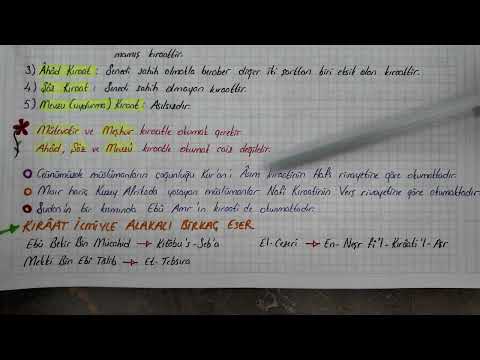 mamış kıraattir.
3) Âhâd Kıraat: Senedi sahih olmakla beraber diğer iki şarttan biri eksik olan kıraattir.
4) Şâz Kıraat: Senedi sahih olmayan kıraattir.
5) Mevzu (uydurma) Kıraat: Asılsızdır.
Mütevatir ve Meşhur kıraatle okumak gerekir.
Ahâd, Şâz ve Mevzû kıraatle okumak caiz değildir.
Günümüzde müslümanların çoğunluğu Kur'an'ı Âsım kıraatinin Hafs rivayetine göre okumaktadır.
Mısır hariç Kuzey Afrikada yaşayan müslümanlar Nafi Kıraatinin Verş rivayetine göre okumaktadır.
Sudan'ın bir kısmında Ebû Amr'ın kıraati de okunmaktadır.
KIRÂAT İLMİYLE ALAKALI BİRKAÇ ESER
Ebû Bekir Bin Mücahid → Kitâbu's-Seb'a
El-Cezeri → En-Neşr Fi'l-Kırââti'l-Aşr
Mekki Bin Ebî Tâlib → Et-Tebsıra